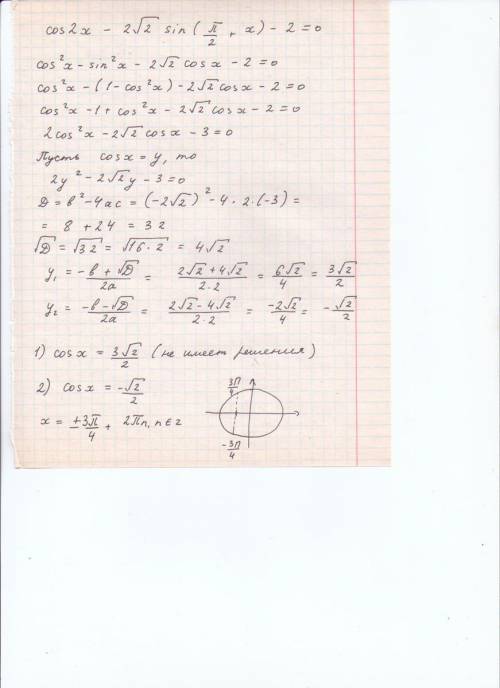 cos2x - 2√2 sin(π/2 + x) - 2 = 0
cos²x - sin²x - 2√2 cosx - 2 = 0
cos²x - (1 - cos²x) - 2√2 cosx - 2 = 0
cos²x - 1 + cos²x - 2√2 cosx - 2 = 0
2cos²x - 2√2 cosx - 3 = 0
Пусть cosx = y, то
2y² - 2√2y - 3 = 0
D = b² - 4ac = (-2√2)² - 4 · 2 · (-3) =
= 8 + 24 = 32
√D = √32 = √16·2 = 4√2
y₁ = (-b + √D)/2a = (2√2 + 4√2)/2·2 = 6√2/4 = 3√2/2
y₂ = (-b - √D)/2a = (2√2 - 4√2)/2·2 = -2√2/4 = -√2/2
1) cosx = 3√2/2 (не имеет решения)
2) cosx = -√2/2
x = ±3π/4 + 2πn, n∈z
3π/4
-3π/4